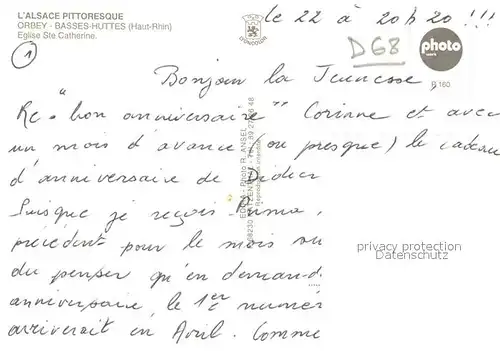 L'ALSACE PITTORESQUE
ORBEY - BASSES-HUTTES (Haut-Rhin)
Eglise Ste Catherine.
le 22 à 20h20 !!!
D68
photo
1
Bonjour la Jeunesse
160
Re "bon anniversaire" Corinne et avec
un mois d'avance (ou presque) le cadeau
d'anniversaire de Didier
Puisque je reçois Prima,
précédent pour le mois
du penser qu'en demand.
anniversaire, le 1er numéro
arriverait en Avril. Comme
privacy protection
Datenschutz
Reproduction interdite